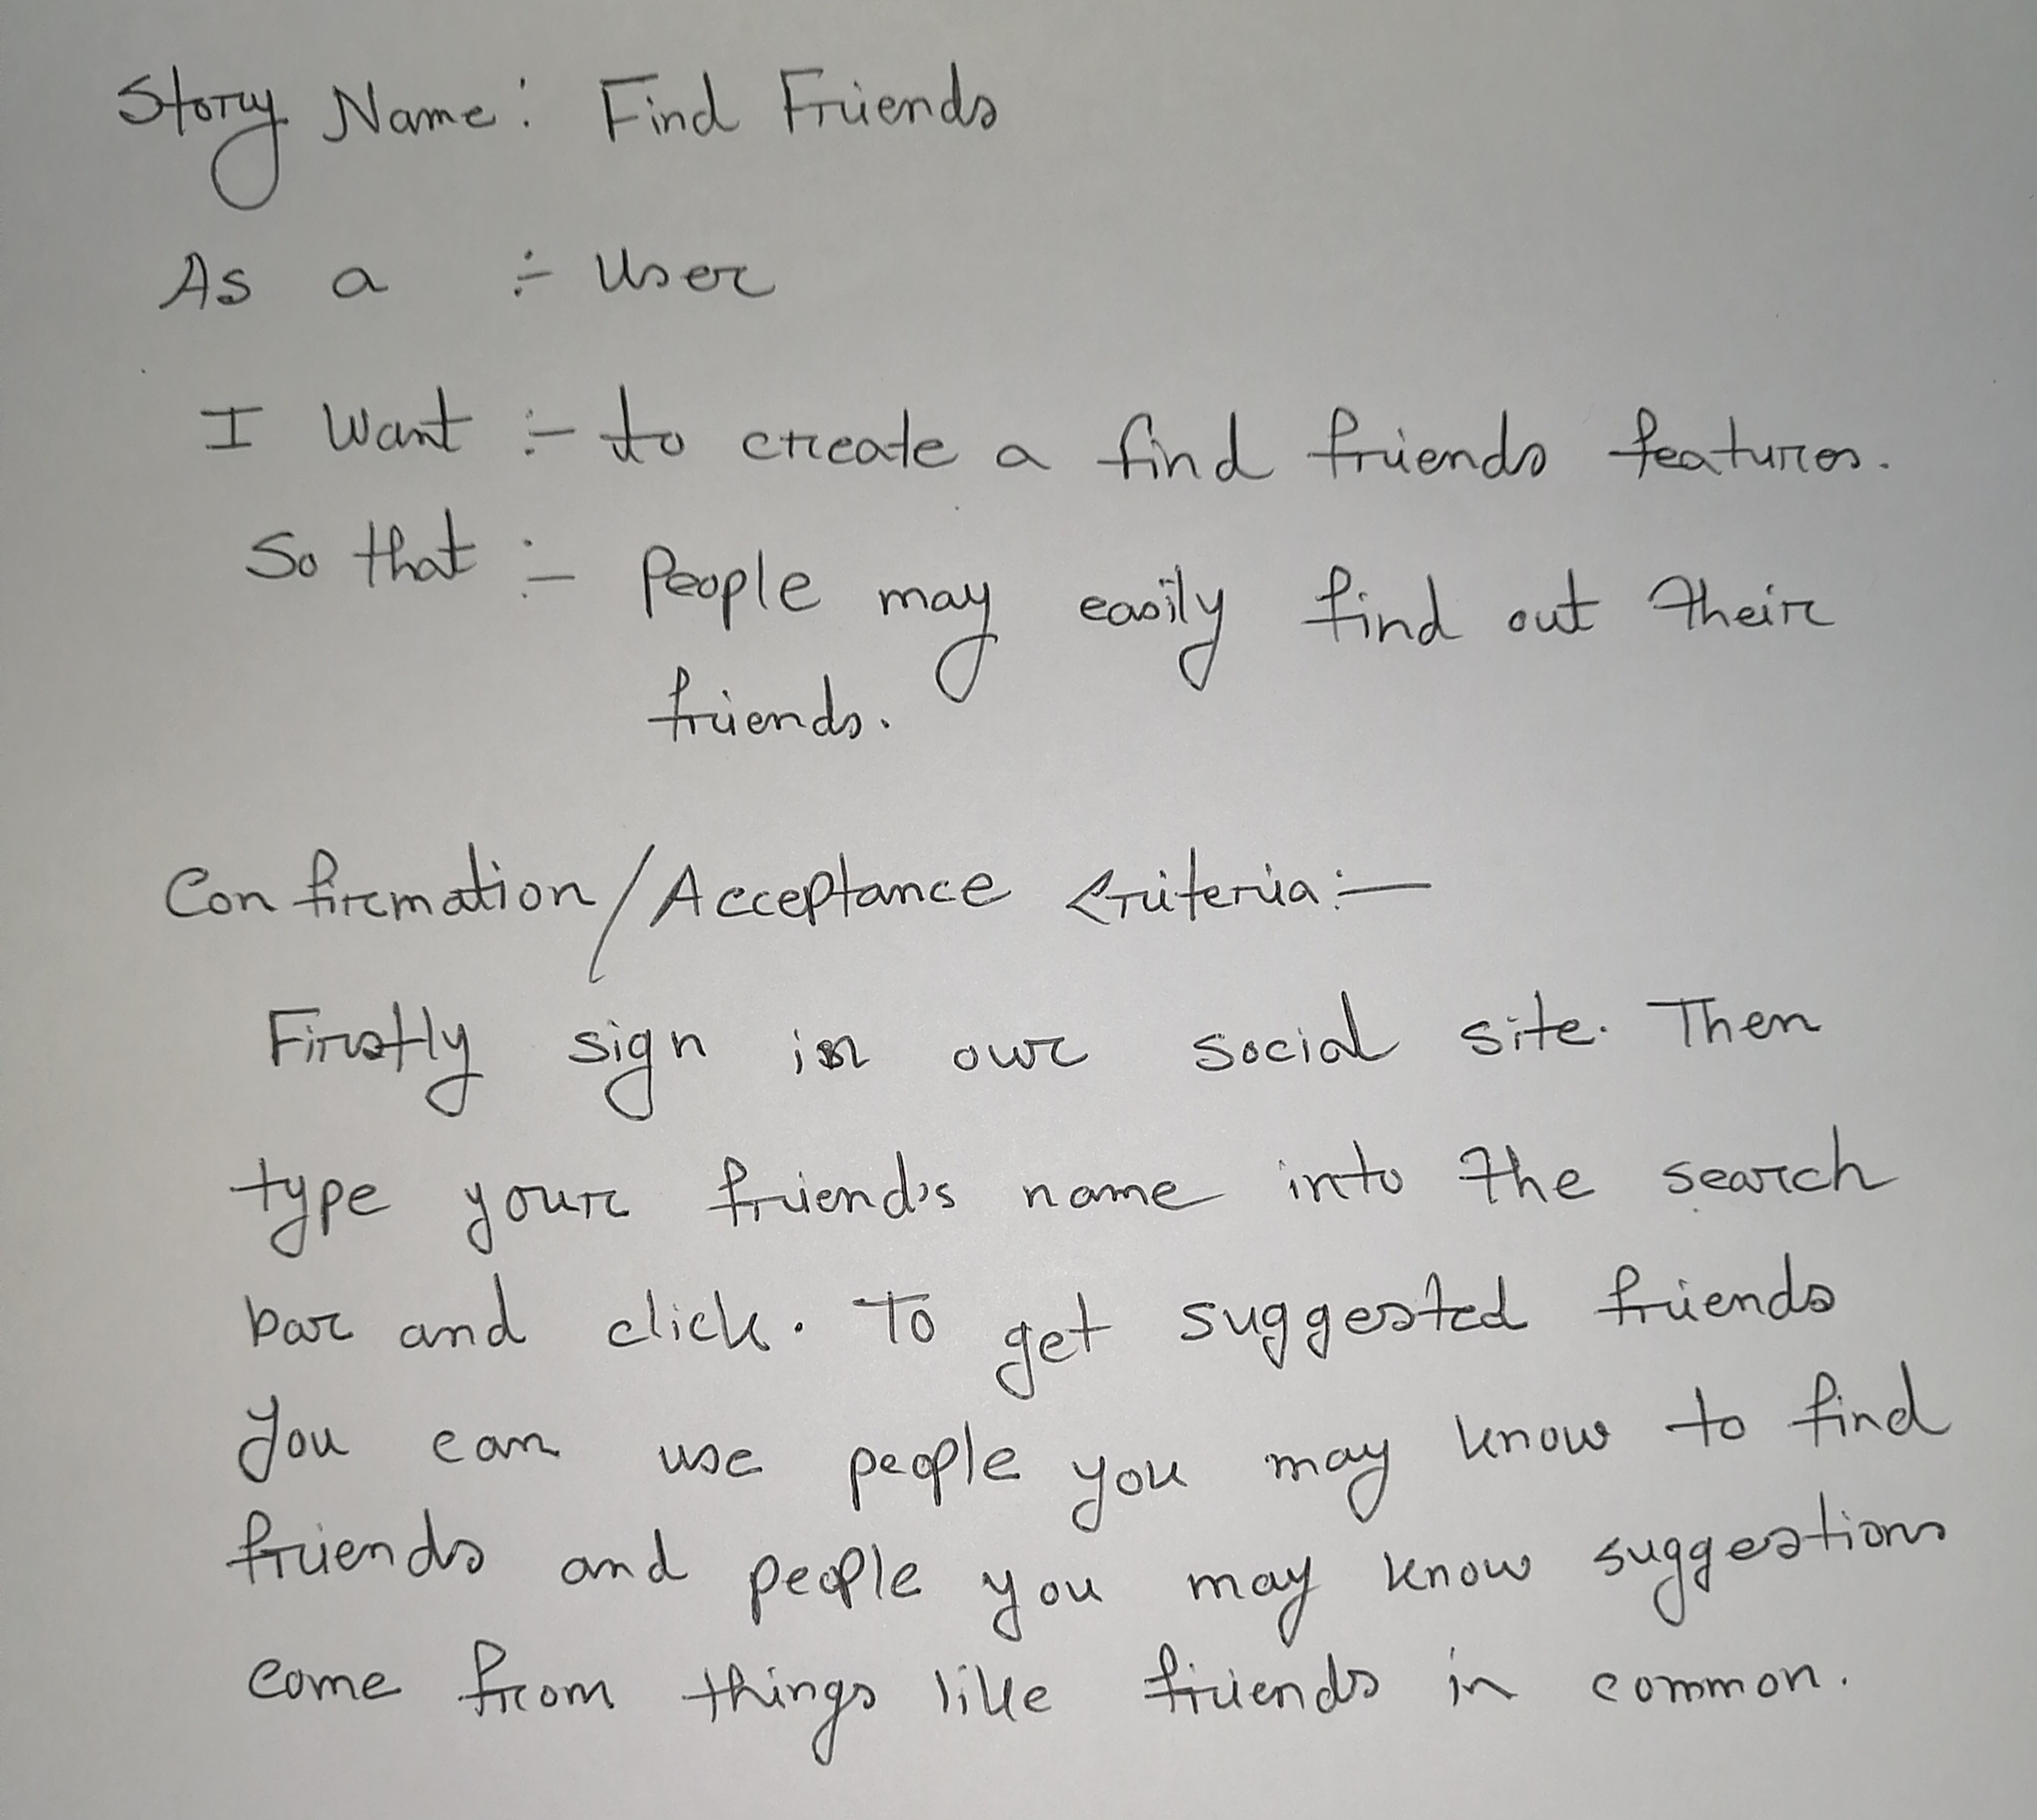 Story Name: Find Friends
As a :- User
I want :- to create a find friends features.
So that :- People may easily find out their
friends.
Confirmation/Acceptance Criteria:-
Firstly sign in our social site. Then
type your friend's name into the search
bar and click. To get suggested friends
you can use people you may know to find
friends and people you may know suggestions
come from things like friends in common.